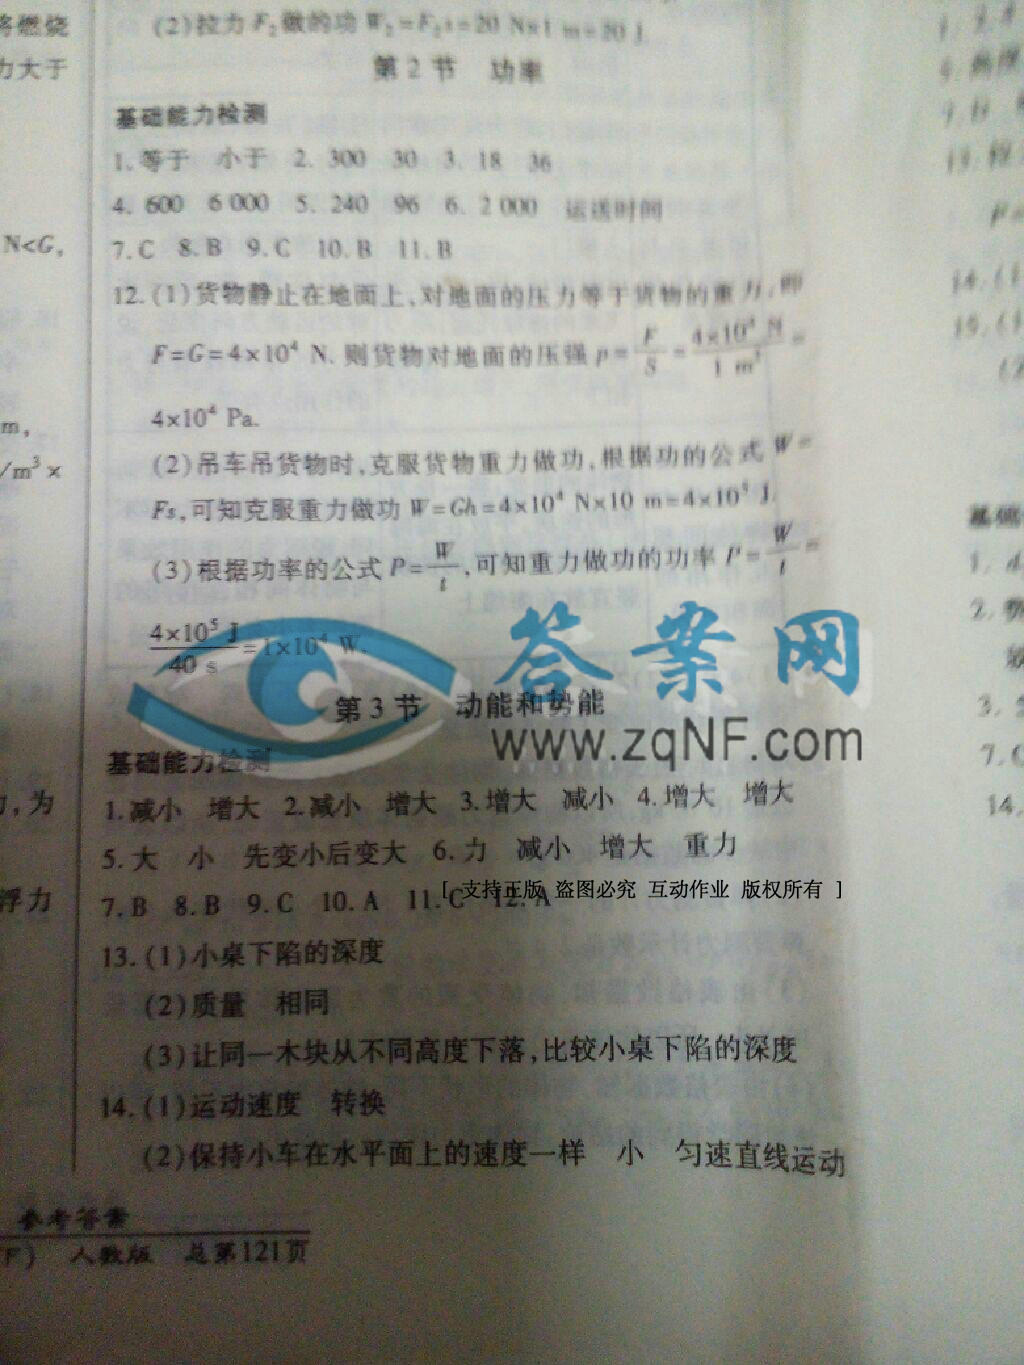 将燃烧
力大于
N<G,
m,
/m³×
力,为
浮力
(2)拉力F₂做的功W₂=F₂s=20 N×1 m=20 J.
第2节 功率
基础能力检测
1.等于 小于 2. 300 30 3. 18 36
4. 600 6 000 5. 240 96 6. 2 000 运送时间
7.C 8.B 9.C 10.B 11.B
12.(1)货物静止在地面上,对地面的压力等于货物的重力,即
F=G=4×10⁴ N.则货物对地面的压强p=F/S=4×10⁴ N/1 m²=
4×10⁴ Pa.
(2)吊车吊货物时,克服货物重力做功,根据功的公式W=
Fs,可知克服重力做功W=Gh=4×10⁴ N×10 m=4×10⁵ J.
(3)根据功率的公式P=W/t,可知重力做功的功率P=W/t=
4×10⁵ J/40 s=1×10⁴ W.
答案网
www.zqNF.com
第3节 动能和势能
基础能力检测
1.减小 增大 2.减小 增大 3.增大 减小 4.增大 增大
5.大 小 先变小后变大 6.力 减小 增大 重力
[ 支持正版 盗图必究 互动作业 版权所有 ]
7.B 8.B 9.C 10.A 11.C 12.A
13.(1)小桌下陷的深度
(2)质量 相同
(3)让同一木块从不同高度下落,比较小桌下陷的深度
14.(1)运动速度 转换
(2)保持小车在水平面上的速度一样 小 匀速直线运动
参考答案
人教版 总第121页